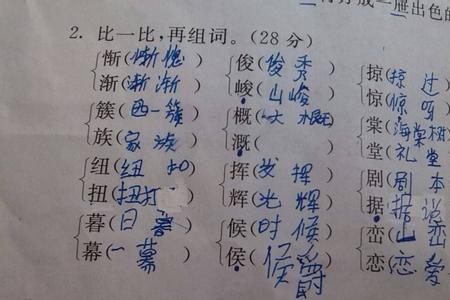 出色的
2. 比一比,再组词。(28分)
惭(惭愧) 俊(俊秀) 掠(掠过)
渐(渐渐) 峻(山峻) 惊(惊呀)
簇(西一簇) 概(大概) 棠(海棠树)
族(家族) 溉( ) 堂(礼堂)
纽(纽扣) 挥(发挥) 剧(剧本)
扭(扭打) 辉(光辉) 据(据说)
暮(日暮) 候(时候) 峦(山峦)
幕(一幕) 侯(侯爵) 恋(恋爱)